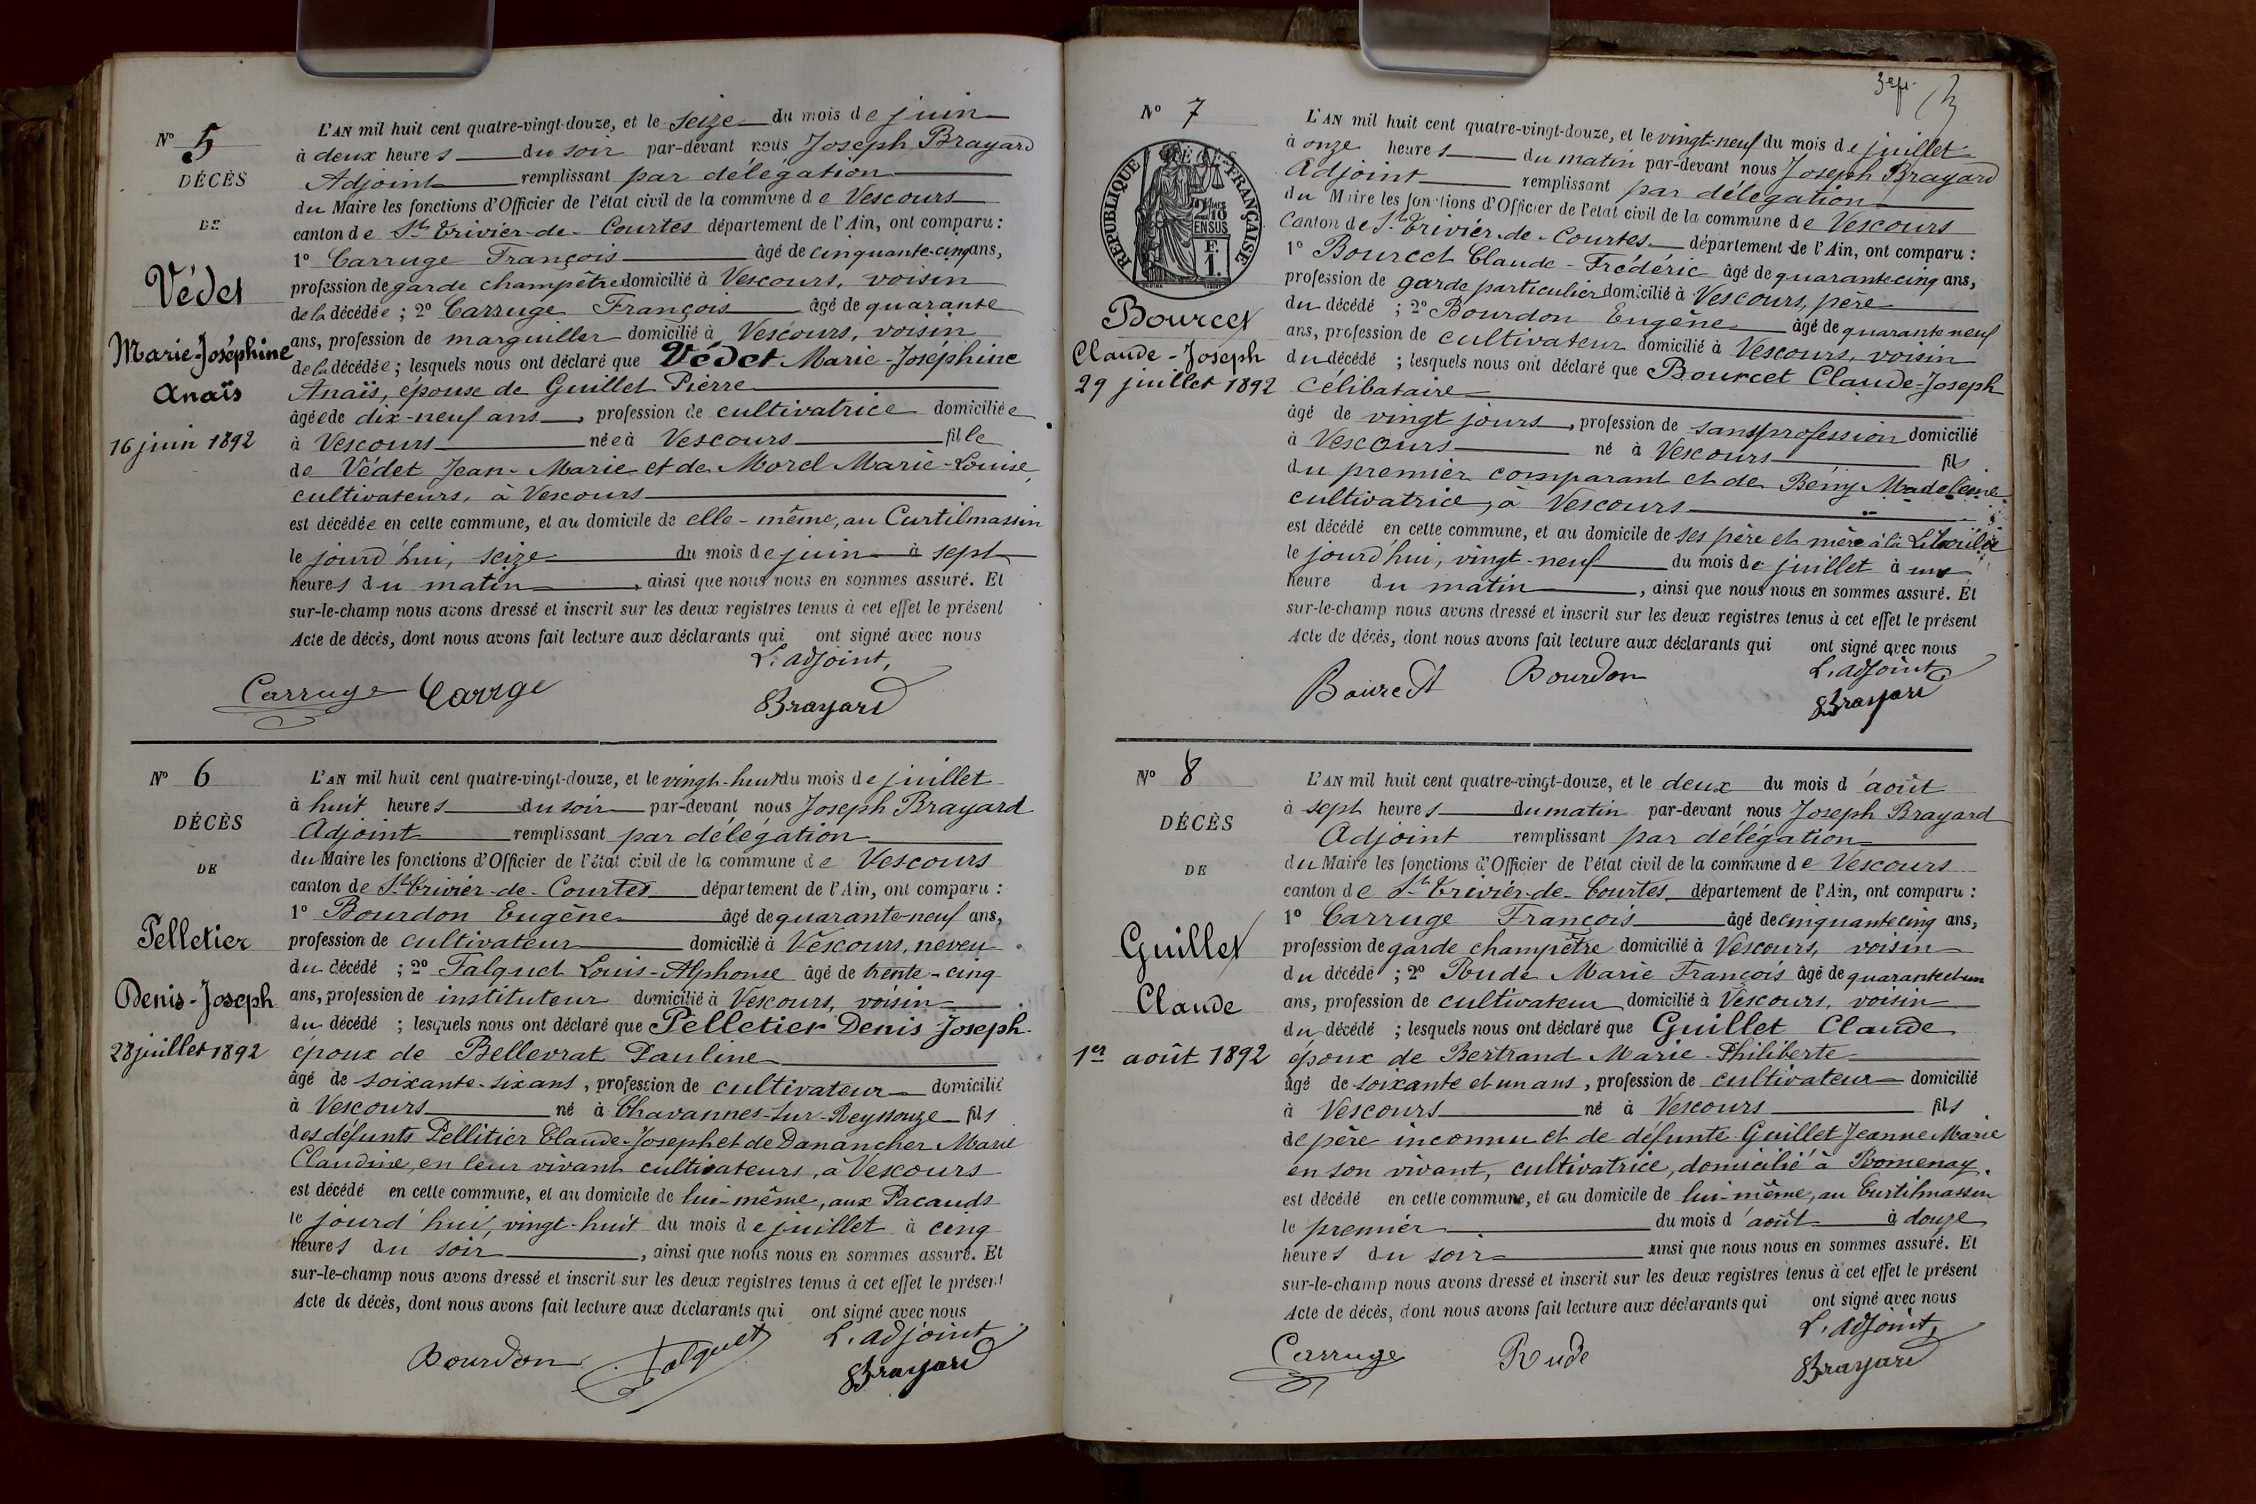 N° 5
DÉCÈS
DE
Védet
Marie-Joséphine
Anaïs
16 juin 1892
L'AN mil huit cent quatre-vingt-douze, et le seize du mois de juin
à deux heures du soir par-devant nous Joseph Brayard
Adjoint remplissant par délégation
du Maire les fonctions d'Officier de l'état civil de la commune de Vescours
canton de St Trivier-de-Courtes département de l'Ain, ont comparu :
1° Carruge François âgé de cinquante-cinq ans,
profession de garde champêtre domicilié à Vescours, voisin
de la décédée ; 2° Carruge François âgé de quarante
ans, profession de marguiller domicilié à Vescours, voisin
de la décédée ; lesquels nous ont déclaré que Védet Marie-Joséphine
Anaïs, épouse de Guillet Pierre
âgée de dix-neuf ans, profession de cultivatrice domiciliée
à Vescours née à Vescours fille
de Védet Jean-Marie et de Morel Marie-Louise,
cultivateurs, à Vescours
est décédée en cette commune, et au domicile de elle-même, au Curtilmassin
le jourd'hui, seize du mois de juin à sept
heures du matin, ainsi que nous nous en sommes assuré. Et
sur-le-champ nous avons dressé et inscrit sur les deux registres tenus à cet effet le présent
Acte de décès, dont nous avons fait lecture aux déclarants qui ont signé avec nous
L'adjoint,
Carruge Carrge Brayard
N° 6
DÉCÈS
DE
Pelletier
Denis-Joseph
28 juillet 1892
L'AN mil huit cent quatre-vingt-douze, et le vingt-huit du mois de juillet
à huit heures du soir par-devant nous Joseph Brayard
Adjoint remplissant par délégation
du Maire les fonctions d'Officier de l'état civil de la commune de Vescours
canton de St Trivier-de-Courtes département de l'Ain, ont comparu :
1° Bourdon Eugène âgé de quarante-neuf ans,
profession de cultivateur domicilié à Vescours, neveu
du décédé ; 2° Falquet Louis-Alphonse âgé de trente-cinq
ans, profession de instituteur domicilié à Vescours, voisin
du décédé ; lesquels nous ont déclaré que Pelletier Denis Joseph
époux de Bellevrat Pauline
âgé de soixante-six ans, profession de cultivateur domicilié
à Vescours né à Chavannes-sur-Reyssouze fils
des défunts Pellitier Claude-Joseph et de Danancher Marie
Claudine, en leur vivant cultivateurs, à Vescours
est décédé en cette commune, et au domicile de lui-même, aux Pacauds
le jourd'hui, vingt-huit du mois de juillet à cinq
heures du soir, ainsi que nous nous en sommes assuré. Et
sur-le-champ nous avons dressé et inscrit sur les deux registres tenus à cet effet le présent
Acte de décès, dont nous avons fait lecture aux déclarants qui ont signé avec nous
L'adjoint
Bourdon Falquet Brayard
N° 7
RÉPUBLIQUE FRANÇAISE
2/10 EN SUS
F. 1.
Bourcet
Claude-Joseph
29 juillet 1892
L'AN mil huit cent quatre-vingt-douze, et le vingt-neuf du mois de juillet
à onze heures du matin par-devant nous Joseph Brayard
Adjoint remplissant par délégation
du Maire les fonctions d'Officier de l'état civil de la commune de Vescours
Canton de St Trivier-de-Courtes département de l'Ain, ont comparu :
1° Bourcet Claude-Frédéric âgé de quarante cinq ans,
profession de garde particulier domicilié à Vescours, père
du décédé ; 2° Bourdon Eugène âgé de quarante neuf
ans, profession de cultivateur domicilié à Vescours, voisin
du décédé ; lesquels nous ont déclaré que Bourcet Claude-Joseph
célibataire
âgé de vingt jours, profession de sans profession domicilié
à Vescours né à Vescours fils
du premier comparant et de Bény Madeleine
cultivatrice, à Vescours
est décédé en cette commune, et au domicile de ses père et mère à la
le jourd'hui, vingt-neuf du mois de juillet à une
heure du matin, ainsi que nous nous en sommes assuré. Et
sur-le-champ nous avons dressé et inscrit sur les deux registres tenus à cet effet le présent
Acte de décès, dont nous avons fait lecture aux déclarants qui ont signé avec nous
L'adjoint
Bourcet Bourdon Brayard
N° 8
DÉCÈS
DE
Guillet
Claude
1er août 1892
L'AN mil huit cent quatre-vingt-douze, et le deux du mois d'août
à sept heures du matin par-devant nous Joseph Brayard
Adjoint remplissant par délégation
du Maire les fonctions d'Officier de l'état civil de la commune de Vescours
canton de St Trivier-de-Courtes département de l'Ain, ont comparu :
1° Carruge François âgé de cinquante cinq ans,
profession de garde champêtre domicilié à Vescours, voisin
du décédé ; 2° Rude Marie François âgé de quarante et un
ans, profession de cultivateur domicilié à Vescours, voisin
du décédé ; lesquels nous ont déclaré que Guillet Claude
époux de Bertrand Marie-Philiberte
âgé de soixante et un ans, profession de cultivateur domicilié
à Vescours né à Vescours fils
de père inconnu et de défunte Guillet Jeanne Marie
en son vivant, cultivatrice, domicilié à Romenay.
est décédé en cette commune, et au domicile de lui-même, au Curtilmassin
le premier du mois d'août à douze
heures du soir ainsi que nous nous en sommes assuré. Et
sur-le-champ nous avons dressé et inscrit sur les deux registres tenus à cet effet le présent
Acte de décès, dont nous avons fait lecture aux déclarants qui ont signé avec nous
L'adjoint,
Carruge Rude Brayard